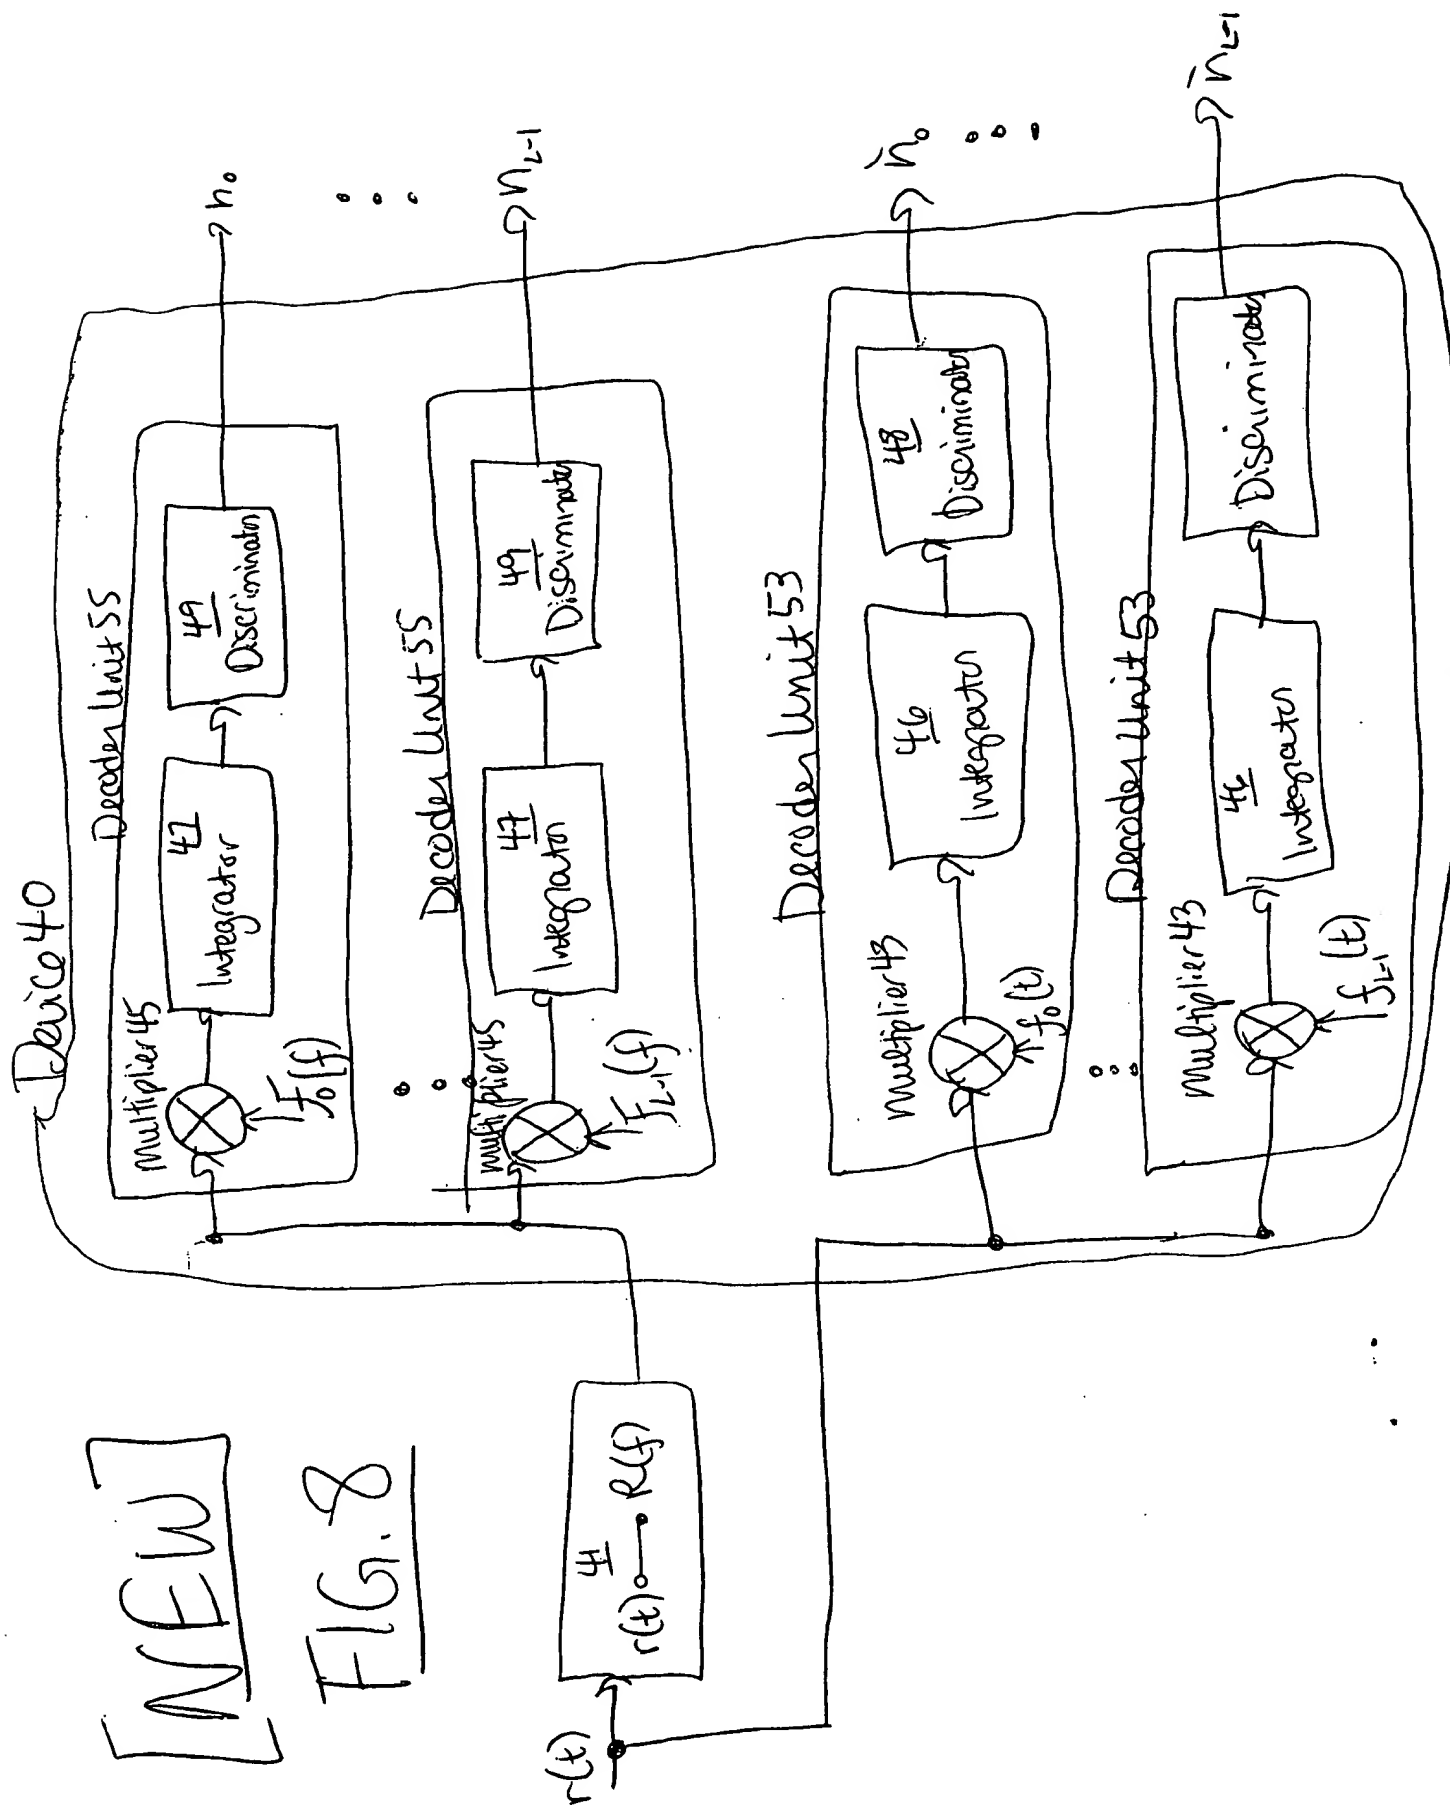 [NEW]
FIG. 8
Device 40
Decoder Unit 55
multiplier 45
F₀(f)
47
Integrator
49
Discriminator
n₀
Decoder Unit 55
multiplier 45
F_{L-1}(f)
47
Integrator
49
Discriminator
n_{L-1}
r(t)
41
r(t) R(f)
Decoder Unit 53
multiplier 43
f₀(t)
46
Integrator
48
Discriminator
n̄₀
Decoder Unit 53
multiplier 43
f_{L-1}(t)
46
Integrator
Discriminator
n̄_{L-1}